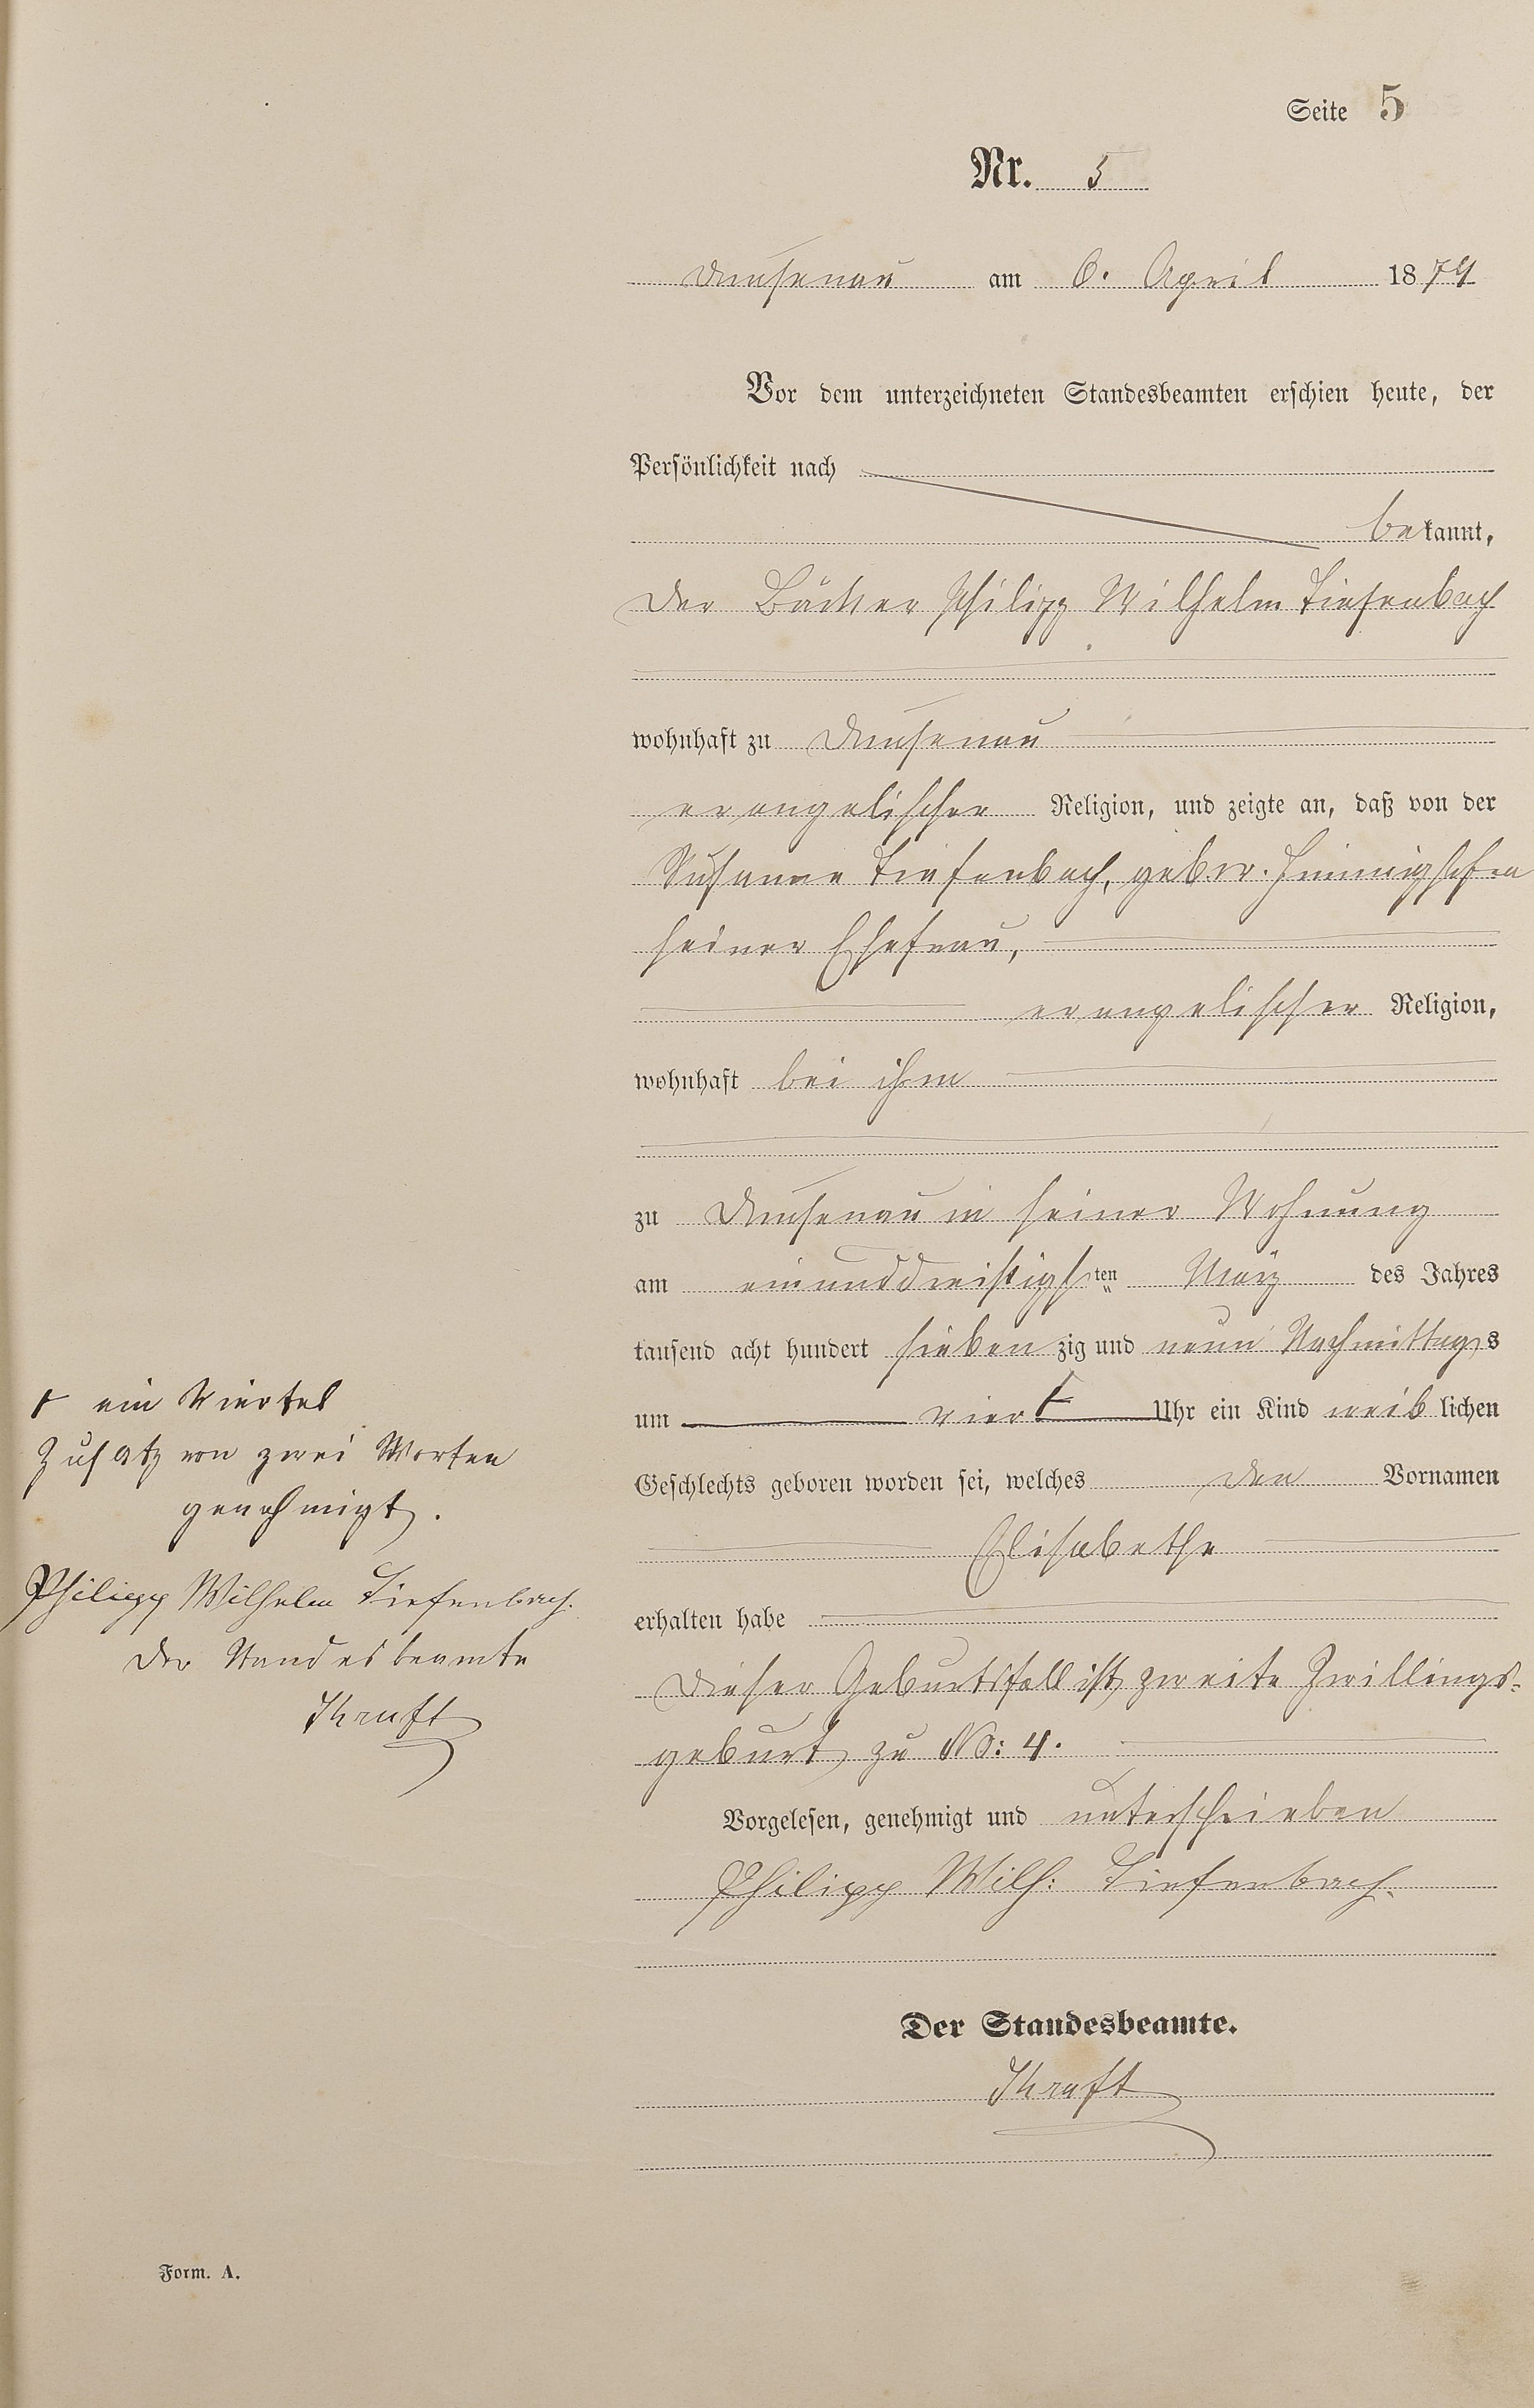 Seite 5
Nr. 5
Dausenau am 6. April 1879
Vor dem unterzeichneten Standesbeamten erschien heute, der
Persönlichkeit nach
bekannt,
der Bäcker Philipp Wilhelm Tiefenbach
wohnhaft zu Dausenau
evangelischer Religion, und zeigte an, daß von der
Susanna Tiefenbach, gebor.
seiner Ehefrau,
evangelischer Religion,
wohnhaft bei ihm
zu Dausenau in seiner Wohnung
am einunddreißigsten März des Jahres
tausend acht hundert siebenzig und neun Nachmittags
um vier ⊢ Uhr ein Kind weiblichen
Geschlechts geboren worden sei, welches den Vornamen
Elisabethe
erhalten habe
Dieser Geburtsfall ist zweite Zwillings-
geburt zu No: 4.
Vorgelesen, genehmigt und unterschrieben
Philipp Wilh: Tiefenbach.
Der Standesbeamte.
⊢ ein Viertel
Zusatz von zwei Worten
genehmigt.
Philipp Wilhelm Tiefenbach.
Der Standesbeamte
Form. A.